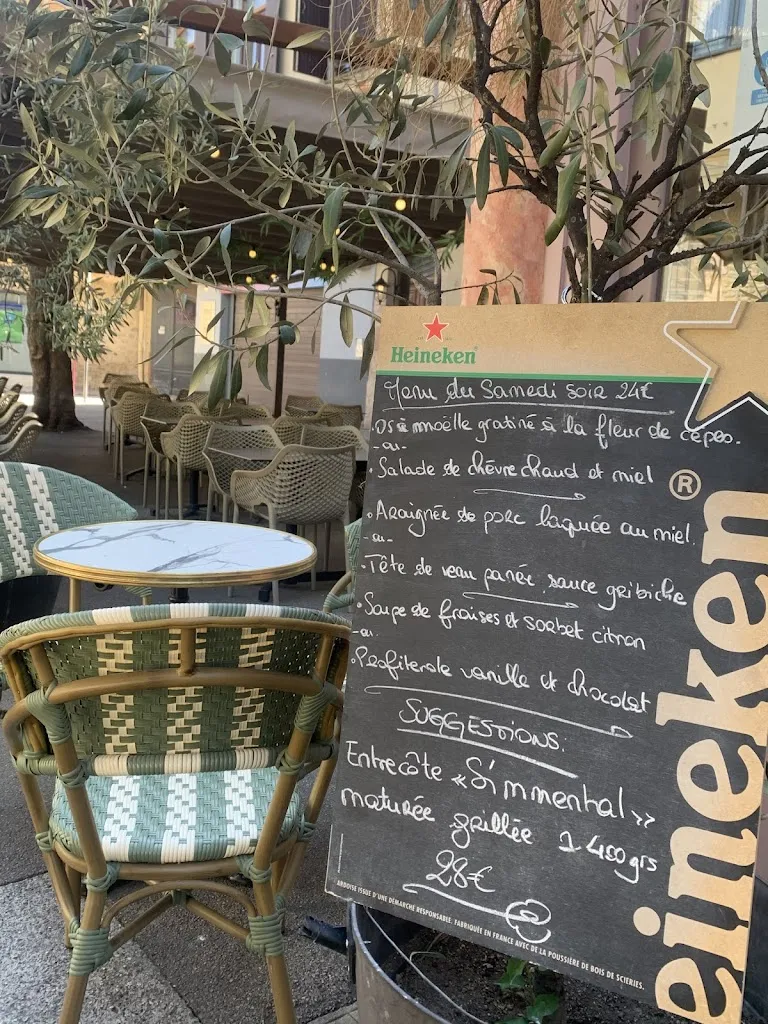 Heineken
Menu du Samedi soir 24€
Os à moëlle gratiné à la fleur de cèpes.
-ou-
• Salade de chèvre chaud et miel
• Araignée de porc laquée au miel.
-ou-
• Tête de veau panée, sauce gribiche
• Soupe de fraises et sorbet citron
-ou-
• Profiterole vanille et chocolat
SUGGESTIONS:
Entrecôte «Simmenthal»
maturée grillée 1400grs
28€
ARDOISE ISSUE D'UNE DÉMARCHE RESPONSABLE. FABRIQUÉE EN FRANCE AVEC DE LA POUSSIÈRE DE BOIS DE SCIERIES.
eineken®